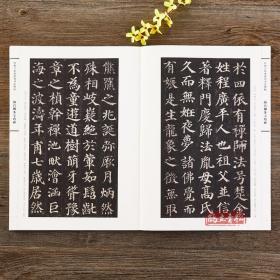 於四依有禪師法号楚金
姓程廣平人也祖父並信
著釋門慶歸法胤母高氏
久而無姙夜夢諸佛覺而
有娠是生龍象之徵無取
熊羆之兆誕弥厥月炳然
殊相岐嶷絶於葷茹髫齔
不為童遊道樹萌牙聳豫
章之楨幹禪池畎澮涵巨
海之波濤年甫七歲居然